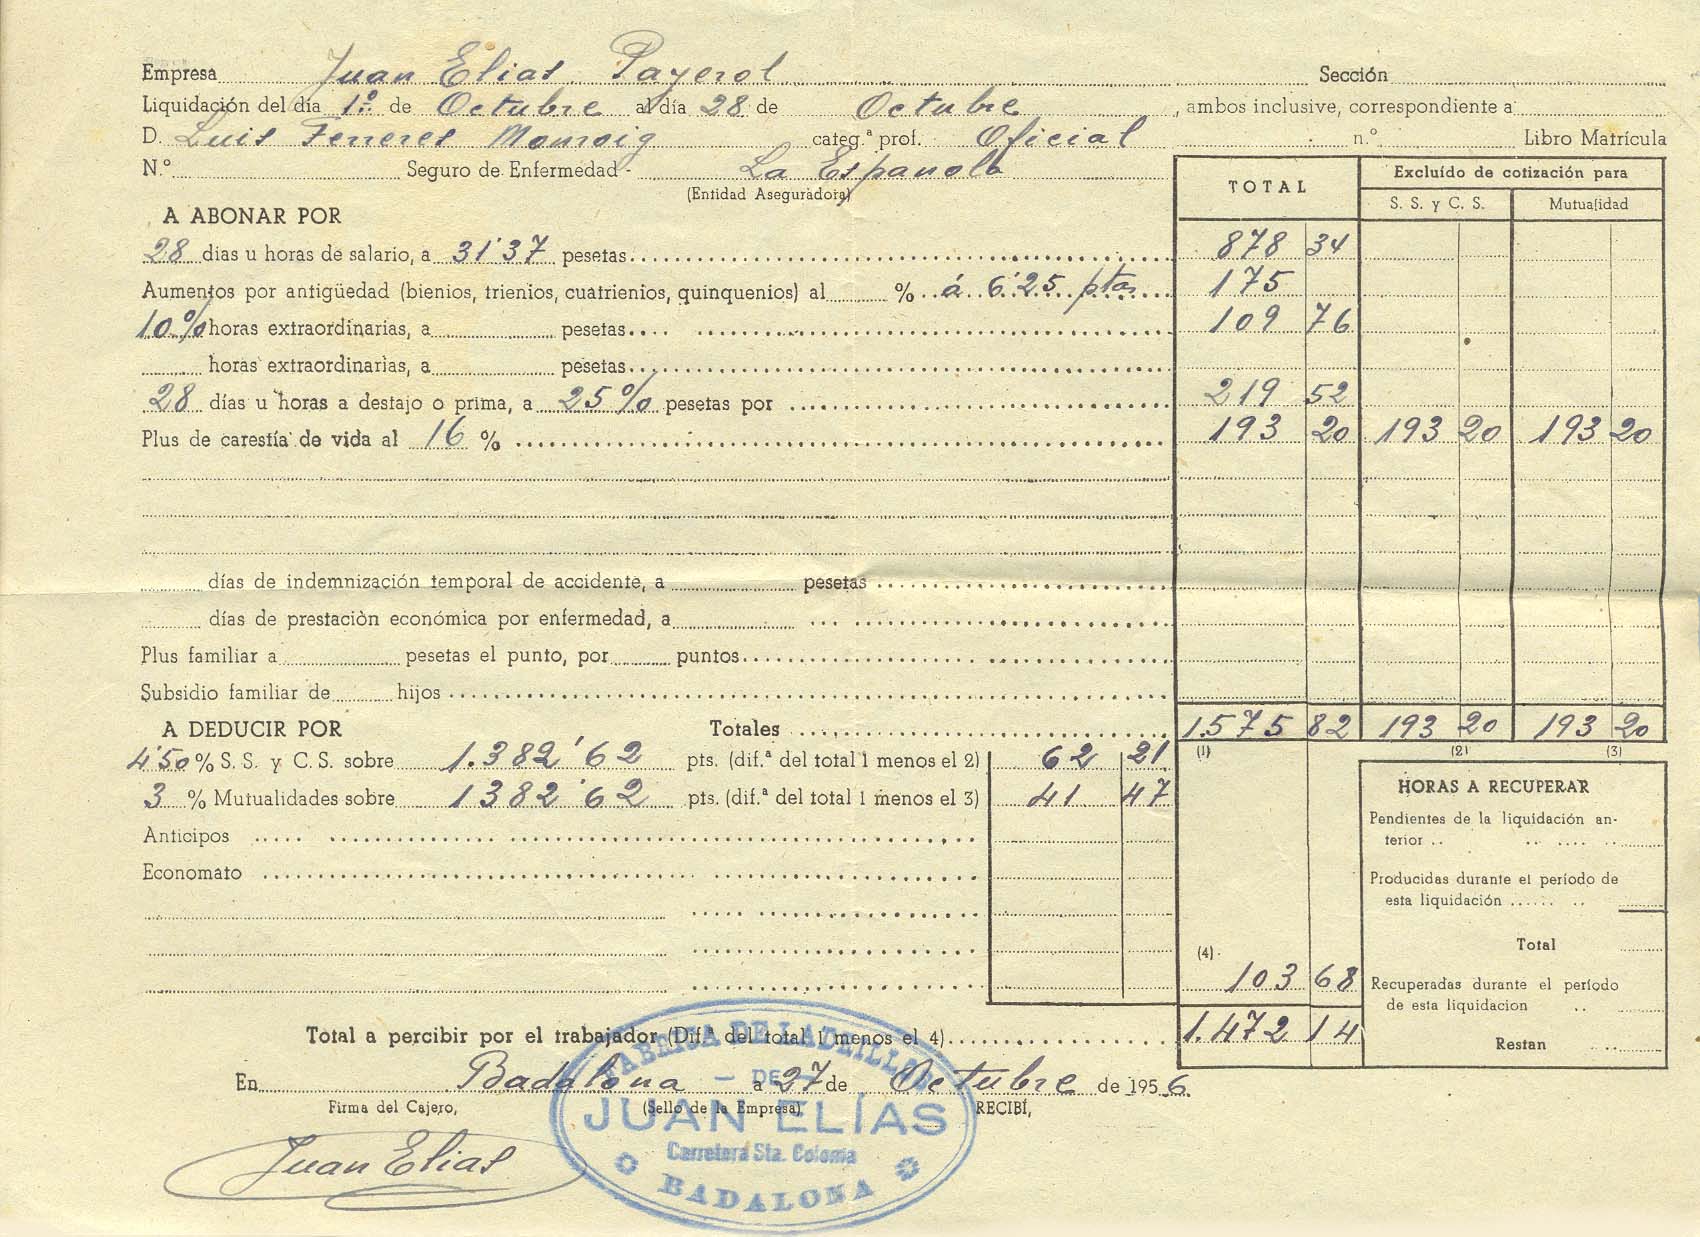 Empresa Juan Elias Payerol Sección
Liquidación del día 1º de Octubre al día 28 de Octubre, ambos inclusive, correspondiente a
D. Luis categ.ª prof. Oficial n.º Libro Matrícula
N.º Seguro de Enfermedad - La Española
(Entidad Aseguradora)
TOTAL Excluído de cotización para
S. S. y C. S. Mutualidad
A ABONAR POR
28 dias u horas de salario, a 31'37 pesetas 878 34
Aumentos por antigüedad (bienios, trienios, cuatrienios, quinquenios) al % á 6'25 ptas 175
10% horas extraordinarias, a pesetas 109 76
horas extraordinarias, a pesetas
28 días u horas a destajo o prima, a 25% pesetas por 219 52
Plus de carestía de vida al 16 % 193 20 193 20 193 20
días de indemnización temporal de accidente, a pesetas
días de prestación económica por enfermedad, a
Plus familiar a pesetas el punto, por puntos
Subsidio familiar de hijos
A DEDUCIR POR Totales 1.575 82 193 20 193 20
(1) (2) (3)
4'50 % S. S. y C. S. sobre 1.382'62 pts. (dif.ª del total 1 menos el 2) 62 21
3 % Mutualidades sobre 1382'62 pts. (dif.ª del total 1 menos el 3) 41 47
Anticipos
Economato
HORAS A RECUPERAR
Pendientes de la liquidación an-
terior
Producidas durante el período de
esta liquidación
Total
(4) 103 68
Recuperadas durante el período
de esta liquidacion
Restan
Total a percibir por el trabajador (Dif.ª del total 1 menos el 4) 1.472 14
En Badalona a 27 de Octubre de 1956
Firma del Cajero, (Sello de la Empresa) RECIBÍ,
Juan Elias
FABRICA DE LADRILLOS
— DE —
JUAN ELÍAS
Carretera Sta. Coloma
BADALONA